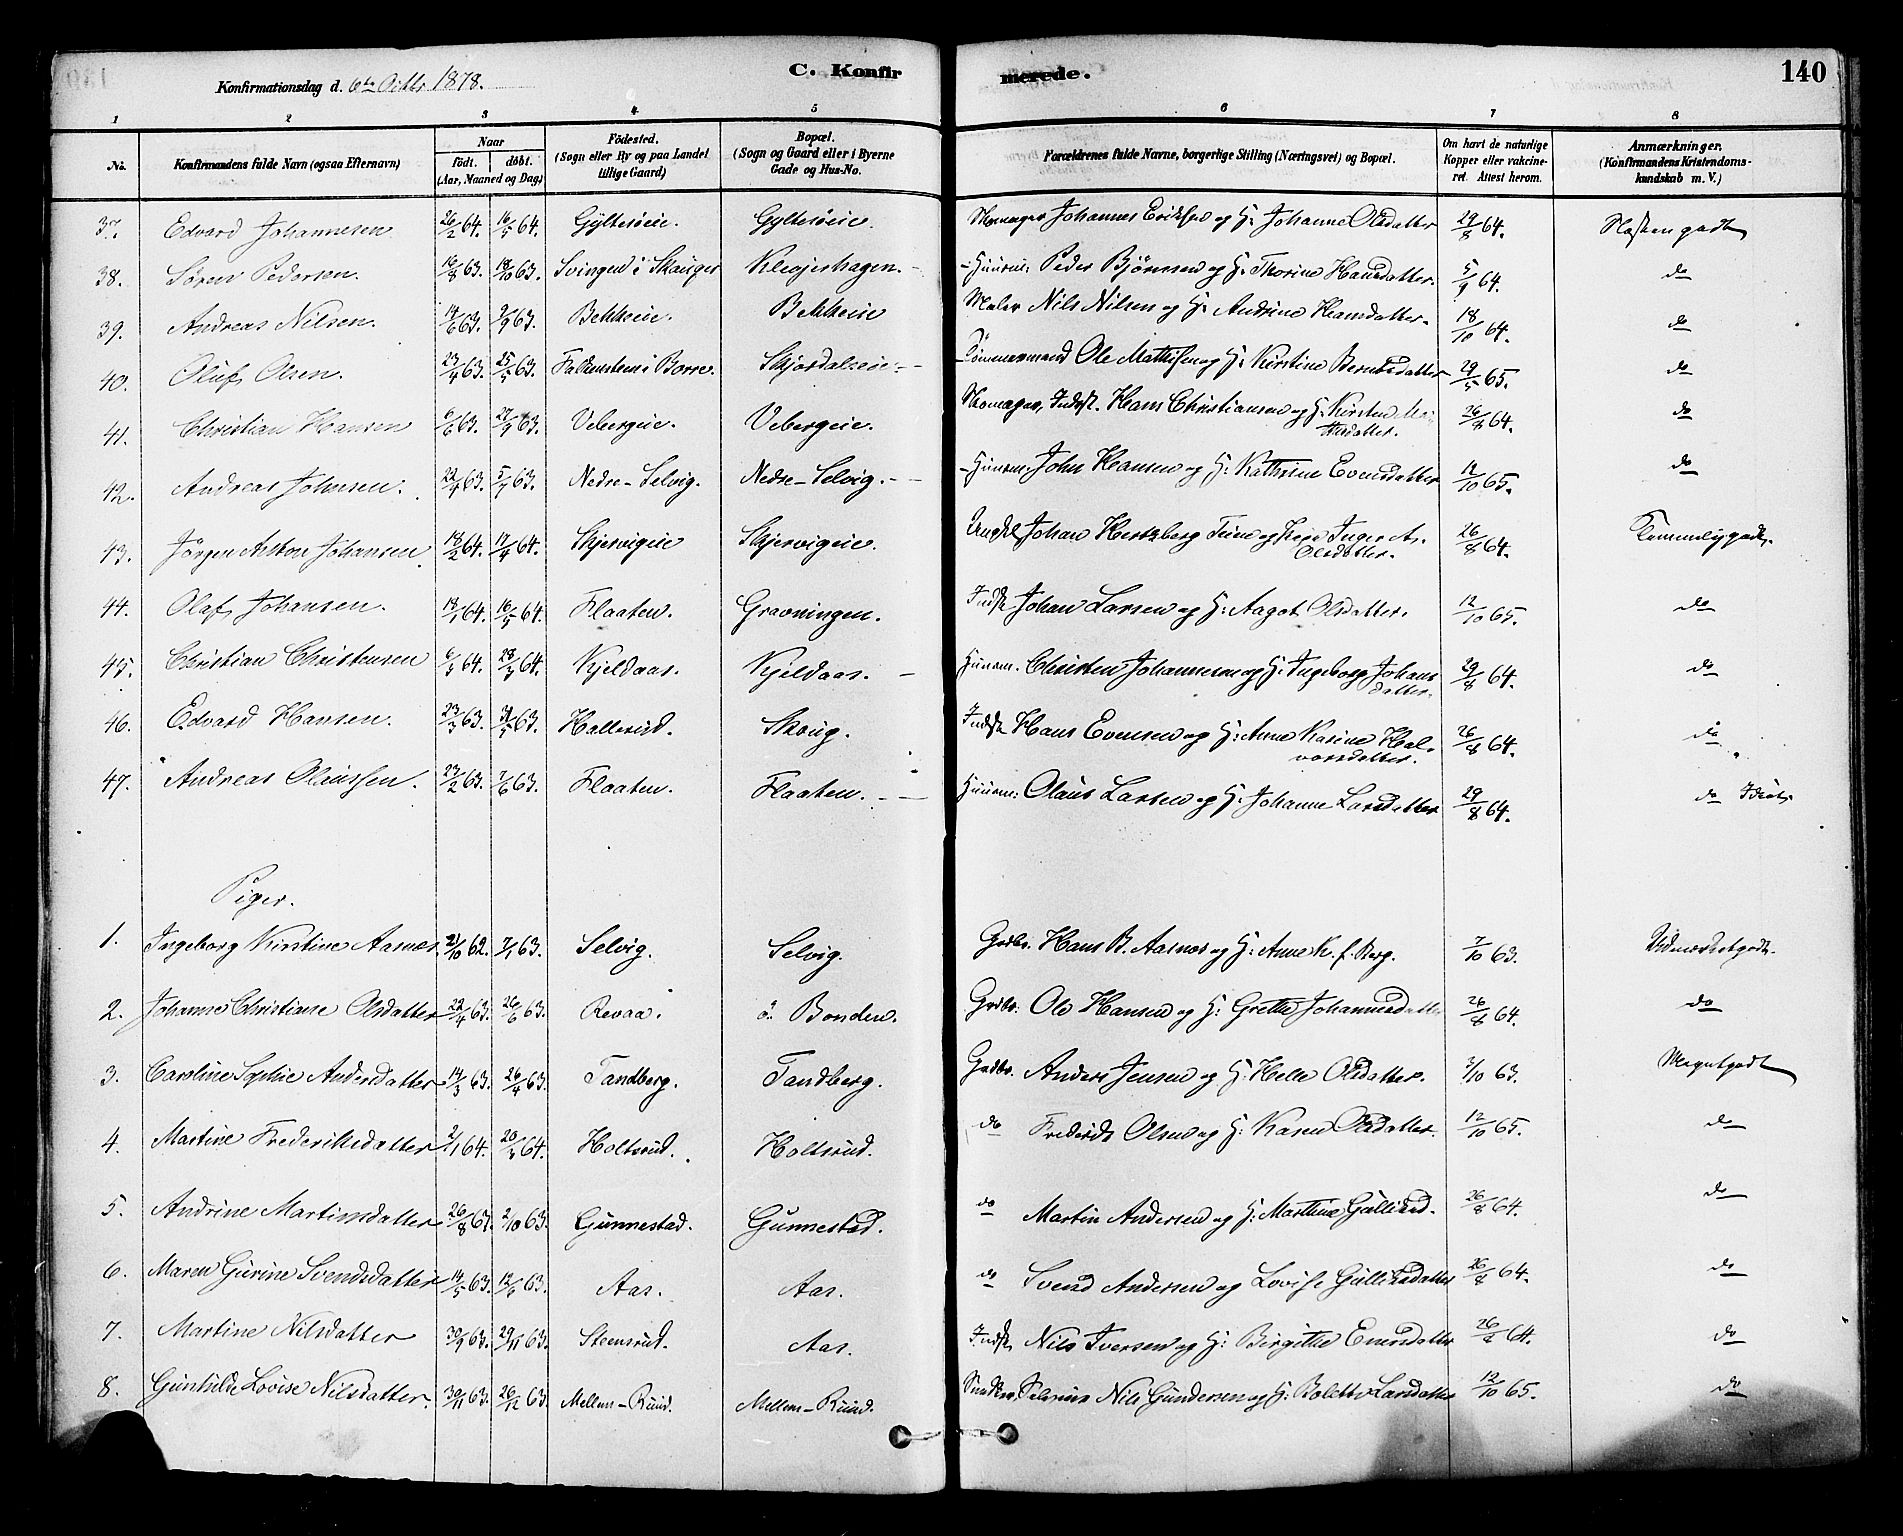 Konfirmationsdag d. 6te Octbr 1878. C. Konfirmerede. 140
1 2 3 4 5 6 7 8
No. Konfirmandens fulde Navn (ogsaa Efternavn) Naar födt. döbt. (Aar, Maaned og Dag) Födested. (Sogn eller By og paa Landet tillige Gaard) Bopæl. (Sogn og Gaard eller i Byerne Gade og Hus-No. Forældrenes fulde Navne, borgerlige Stilling (Næringsvei) og Bopæl. Om havt de naturlige Kopper eller vakcineret. Attest herom. Anmærkninger. (Konfirmandens Kristendomskundskab m. V.)
37. Edvard Johannesen 26/2 64. 16/5 64. Gyltesöeie. Gyltesöeie. Skomager Johannes Eriksen og H: Johanne Olsdatter 29/8 64. Næstengodt
38. Sören Pedersen. 16/8 63. 18/10 63. Svingen i Skauger Klevjerhagen. Huusm: Peder Bjørnsen og H: Thorine Hansdatter. 5/9 64. do
39. Andreas Nilsen. 14/6 63. 9/9 63. Bekkeeie. Bekkeeie Maler Nils Nilsen og H: Andrine Hansdatter. 18/10 64. do
40. Oluf Olsen. 23/4 63. 25/5 63. Falkensten i Borre. Skjørdalseie. Tömmermand Ole Mathisen og H: Kirstine Berntsdatter 29/5 65. do
41. Christian Hansen 6/6 63. 27/9 63. Vebergeie. Vebergeie. Skomager, Indst. Hans Christiansen og H: Kirsten Mattisdatter. 26/8 64. do
42. Andreas Johnsen. 22/4 63. 5/7 63. Nedre-Selvig. Nedre-Selvig. Huusm: John Hansen og H: Kathrine Evensdatter 12/10 65. do
43. Jörgen Anton Johansen 18/2 64. 17/4 64. Skjervigeie Skjervigeie. Ungkl Johan Hertzberg Tiim og Inger A. Olsdatter. 26/8 64. Temmeliggodt.
44. Olaf Johansen. 18/1 64. 16/5 64. Flaaten. Gravningen. Indst Johan Larsen og H: Aagot Olsdatter. 12/10 65. do
45. Christian Christensen 6/3 64. 28/3 64. Kjeldaas. Kjeldaas. Huusm. Christen Johannesen og H: Ingeborg Johansdatter. 29/8 64. do
46. Edvard Hansen. 23/3 63. 31/5 63. Hallerud. Skoug. Indst Hans Evensen og H: Anne Karine Halvorsdatter. 26/8 64. do
47. Andreas Olaussen. 23/2 63. 7/6 63. Flaaten. Flaaten. Huusm: Olaus Larsen og H: Johanne Larsdatter 29/8 64. do Idiot
Piger.
1. Ingeborg Kirstine Aasnæs. 21/10 62. 7/1 63. Selvig. Selvig. Grdbr. Hans B. Aasnæs og H: Anne K. f. Berg. 7/10 63. Udmærketgodt.
2. Johanne Christiane Olsdatter 22/4 63. 26/6 63. Revaa. ö. Bonden. Grdbr. Ole Hansen og H: Grethe Johannesdatter 26/8 64. do
3. Caroline Sophie Andersdatter 14/3 63. 26/4 63. Tandberg. Tandberg. Grdbr. Anders Jensen og H: Helle Olsdatter. 3/10 63. Megetgodt
4. Martine Frederiksdatter 2/1 64. 20/3 64. Holtsrud. Holtsrud. do Frederik Olsen og H: Karen Olsdatter. 12/10 65. do
5. Andrine Martinsdatter 26/8 63. 2/10 63. Gunnestad. Gunnestad. do Martin Andersen og H: Marthine Gulliksd. 26/8 64. do
6. Maren Gurine Svendsdatter 14/5 63. 12/6 63. Aas. Aas. do Svend Andersen og Lovise Gulliksdatter 26/8 64. do
7. Martine Nilsdatter 30/9 63. 29/11 63. Steensrud. Aas. Indst Nils Iversen og H: Birgithe Enersdatter 26/8 64. do
8. Gunhilde Lovise Nilsdatter. 30/11 63. 26/12 63. Mellem-Ruud. Mellem-Ruud. Nils Gundersen og H: Bolette Larsdatter 12/10 65. do